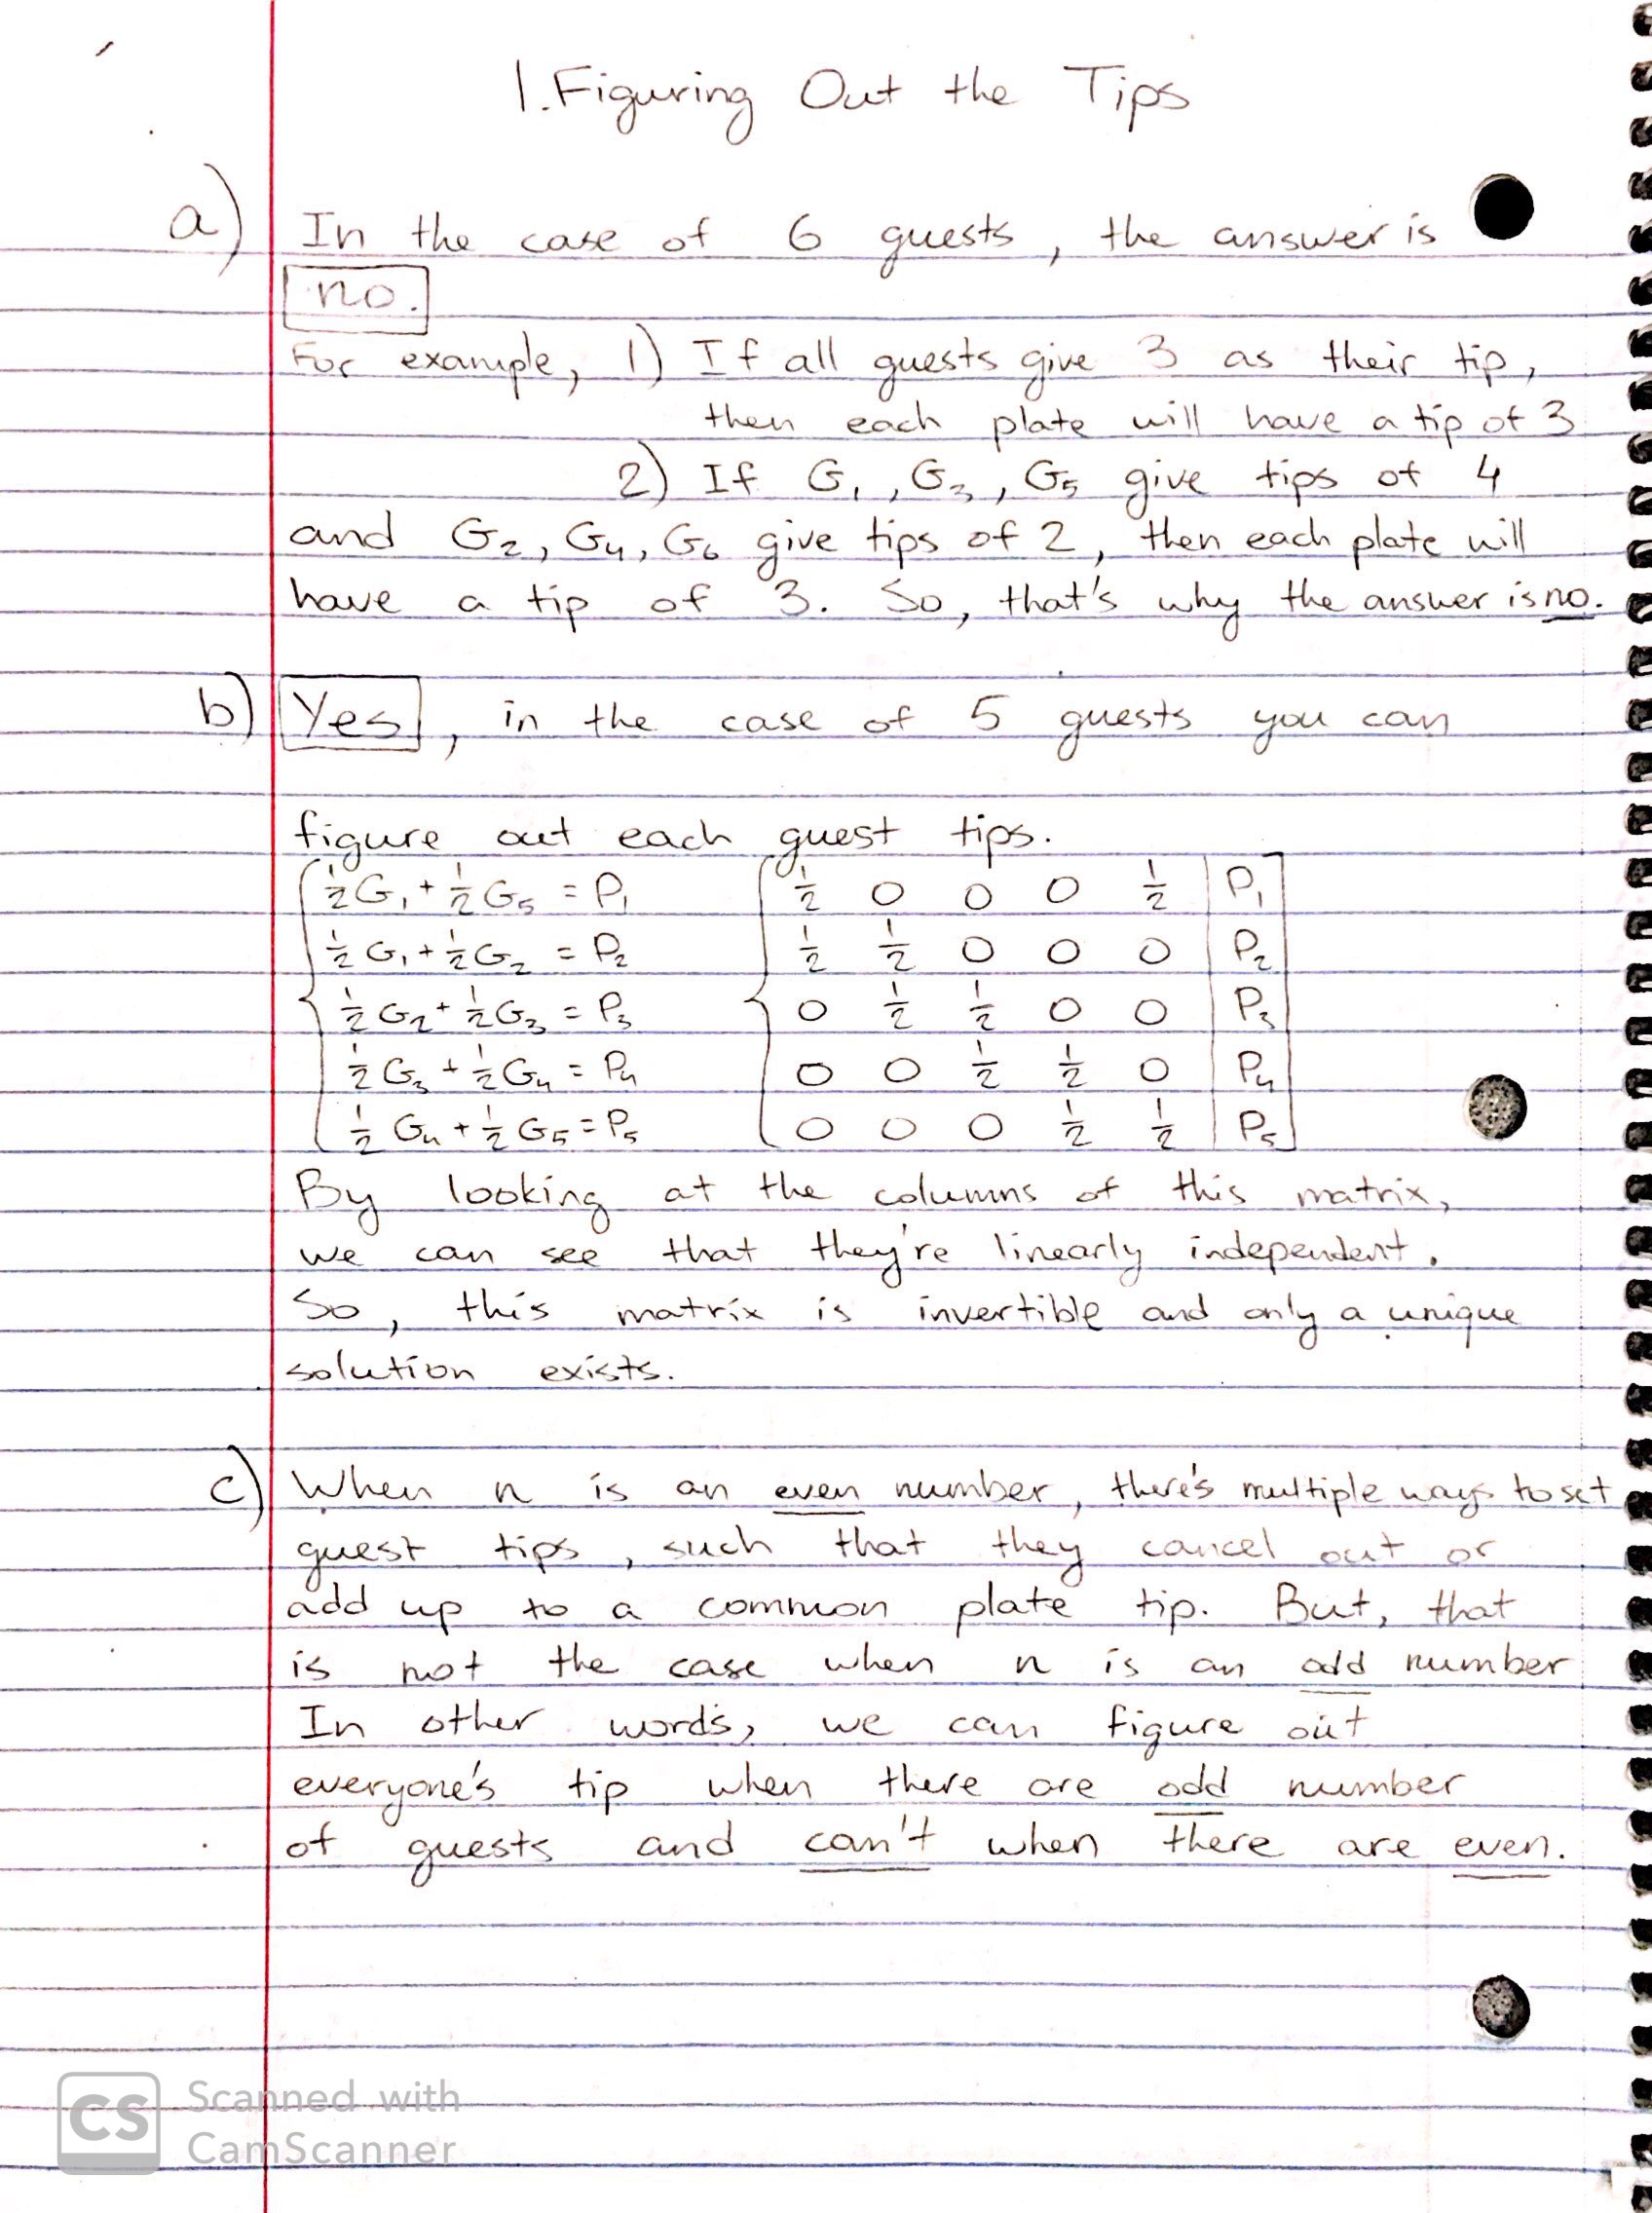 1. Figuring Out the Tips
a) In the case of 6 guests, the answer is
no.
For example, 1) If all guests give 3 as their tip,
then each plate will have a tip of 3
2) If G₁, G₃, G₅ give tips of 4
and G₂, G₄, G₆ give tips of 2, then each plate will
have a tip of 3. So, that's why the answer is no.
b) Yes, in the case of 5 guests you can
figure out each guest tips.
½G₁ + ½G₅ = P₁ ½ 0 0 0 ½ | P₁
½G₁ + ½G₂ = P₂ ½ ½ 0 0 0 | P₂
½G₂ + ½G₃ = P₃ 0 ½ ½ 0 0 | P₃
½G₃ + ½G₄ = P₄ 0 0 ½ ½ 0 | P₄
½G₄ + ½G₅ = P₅ 0 0 0 ½ ½ | P₅
By looking at the columns of this matrix,
we can see that they're linearly independent.
So, this matrix is invertible and only a unique
solution exists.
c) When n is an even number, there's multiple ways to set
guest tips, such that they cancel out or
add up to a common plate tip. But, that
is not the case when n is an odd number
In other words, we can figure out
everyone's tip when there are odd number
of guests and can't when there are even.
CS Scanned with
CamScanner